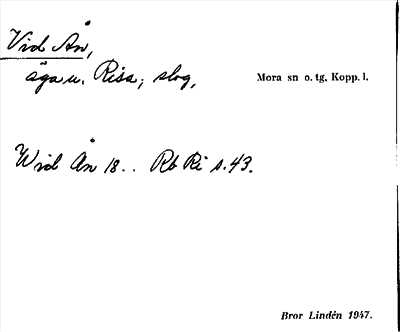 Vid Ån,
äga u. Risa, slog,
Mora sn o. tg, Kopp. l.
Wid Ån 18 . . Rb Ri s. 43.
Bror Lindén 1947.